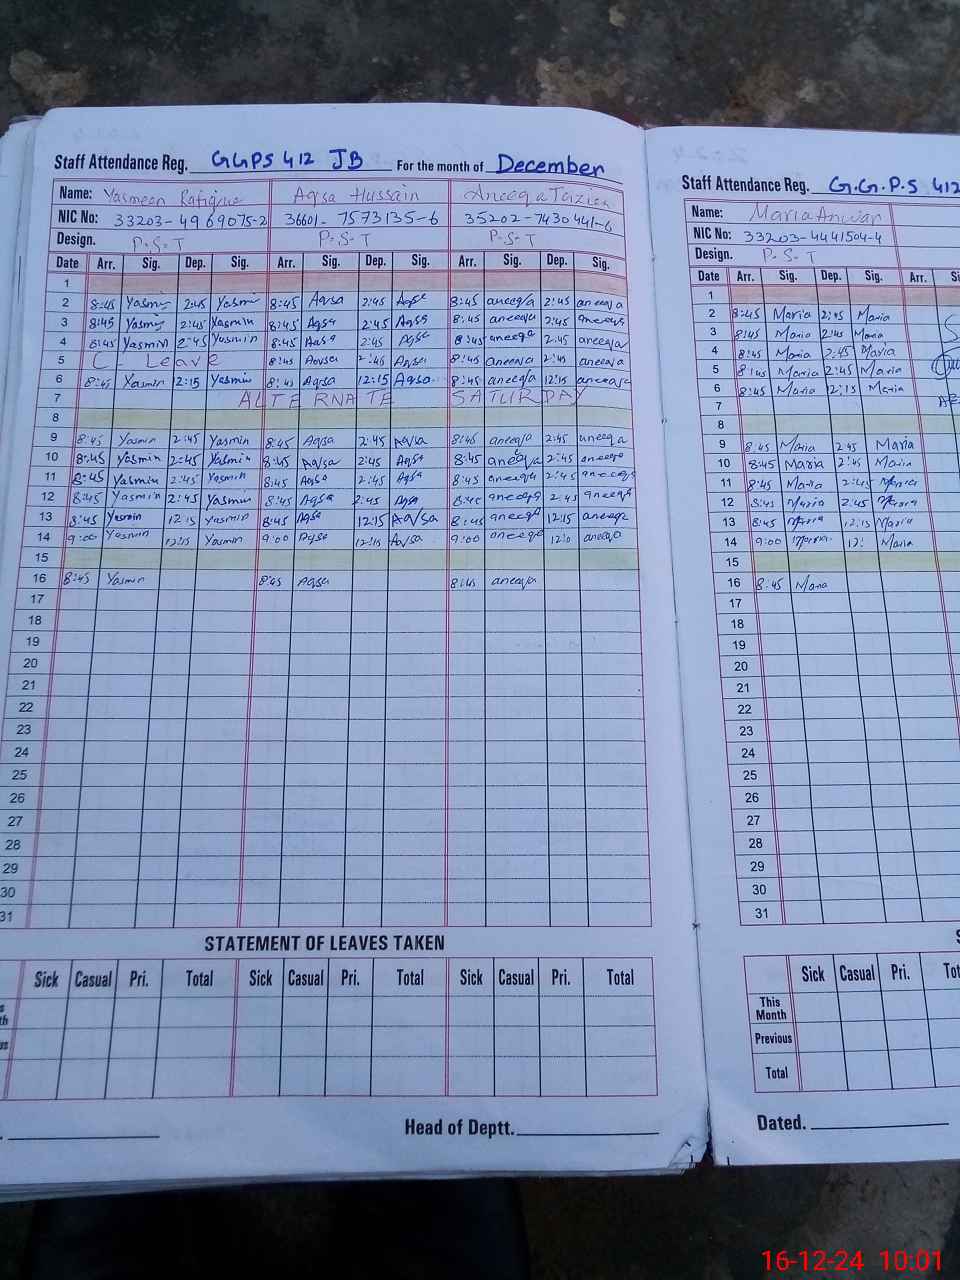 Staff Attendance Reg. GGPS 412 JB For the month of December
Name: Yasmeen Rafique Aqsa Hussain Aneeqa
NIC No: 33203-4969075-2 36601-7573135-6 35202-7430441-6
Design. P.S.T P.S.T P.S.T
Date Arr. Sig. Dep. Sig. Arr. Sig. Dep. Sig. Arr. Sig. Dep. Sig.
1
2 8:45 Yasmin 2:45 Yasmin 8:45 Aqsa 2:45 Aqsa 8:45 aneeqa 2:45 aneeqa
3 8:45 Yasmin 2:45 Yasmin 8:45 Aqsa 2:45 Aqsa 8:45 aneeqa 2:45 aneeqa
4 8:45 Yasmin 2:45 Yasmin 8:45 Aqsa 2:45 Aqsa 8:45 aneeqa 2:45 aneeqa
5 C. Leave 8:45 Aqsa 2:45 Aqsa 8:45 aneeqa 2:45 aneeqa
6 8:45 Yasmin 12:15 Yasmin 8:45 Aqsa 12:15 Aqsa 8:45 aneeqa 12:15 aneeqa
7 ALTERNATE SATURDAY
8
9 8:45 Yasmin 2:45 Yasmin 8:45 Aqsa 2:45 Aqsa 8:45 aneeqa 2:45 aneeqa
10 8:45 Yasmin 2:45 Yasmin 8:45 Aqsa 2:45 Aqsa 8:45 aneeqa 2:45 aneeqa
11 8:45 Yasmin 2:45 Yasmin 8:45 Aqsa 2:45 Aqsa 8:45 aneeqa 2:45 aneeqa
12 8:45 Yasmin 2:45 Yasmin 8:45 Aqsa 2:45 Aqsa 8:45 aneeqa 2:45 aneeqa
13 8:45 Yasmin 12:15 Yasmin 8:45 Aqsa 12:15 Aqsa 8:45 aneeqa 12:15 aneeqa
14 9:00 Yasmin 12:15 Yasmin 9:00 Aqsa 12:15 Aqsa 9:00 aneeqa aneeqa
15
16 8:45 Yasmin 8:45 Aqsa 8:45 aneeqa
17
18
19
20
21
22
23
24
25
26
27
28
29
30
31
STATEMENT OF LEAVES TAKEN
Sick Casual Pri. Total Sick Casual Pri. Total Sick Casual Pri. Total
Head of Deptt.
Staff Attendance Reg. G.G.P.S 412
Name: Maria Anwar
NIC No: 33203-4441504-4
Design. P.S.T
Date Arr. Sig. Dep. Sig. Arr.
1
2 8:45 Maria 2:45 Maria
3 8:45 Maria 2:45 Maria
4 8:45 Maria 2:45 Maria
5 8:45 Maria 2:45 Maria
6 8:45 Maria 12:15 Maria
7
8
9 8:45 Maria 2:45 Maria
10 8:45 Maria 2:45 Maria
11 8:45 Maria 2:45 Maria
12 8:45 Maria 2:45 Maria
13 8:45 Maria 12:15 Maria
14 9:00 Maria 12: Maria
15
16 8:45 Maria
17
18
19
20
21
22
23
24
25
26
27
28
29
30
31
Sick Casual Pri.
This Month
Previous
Total
Dated.
16-12-24 10:01